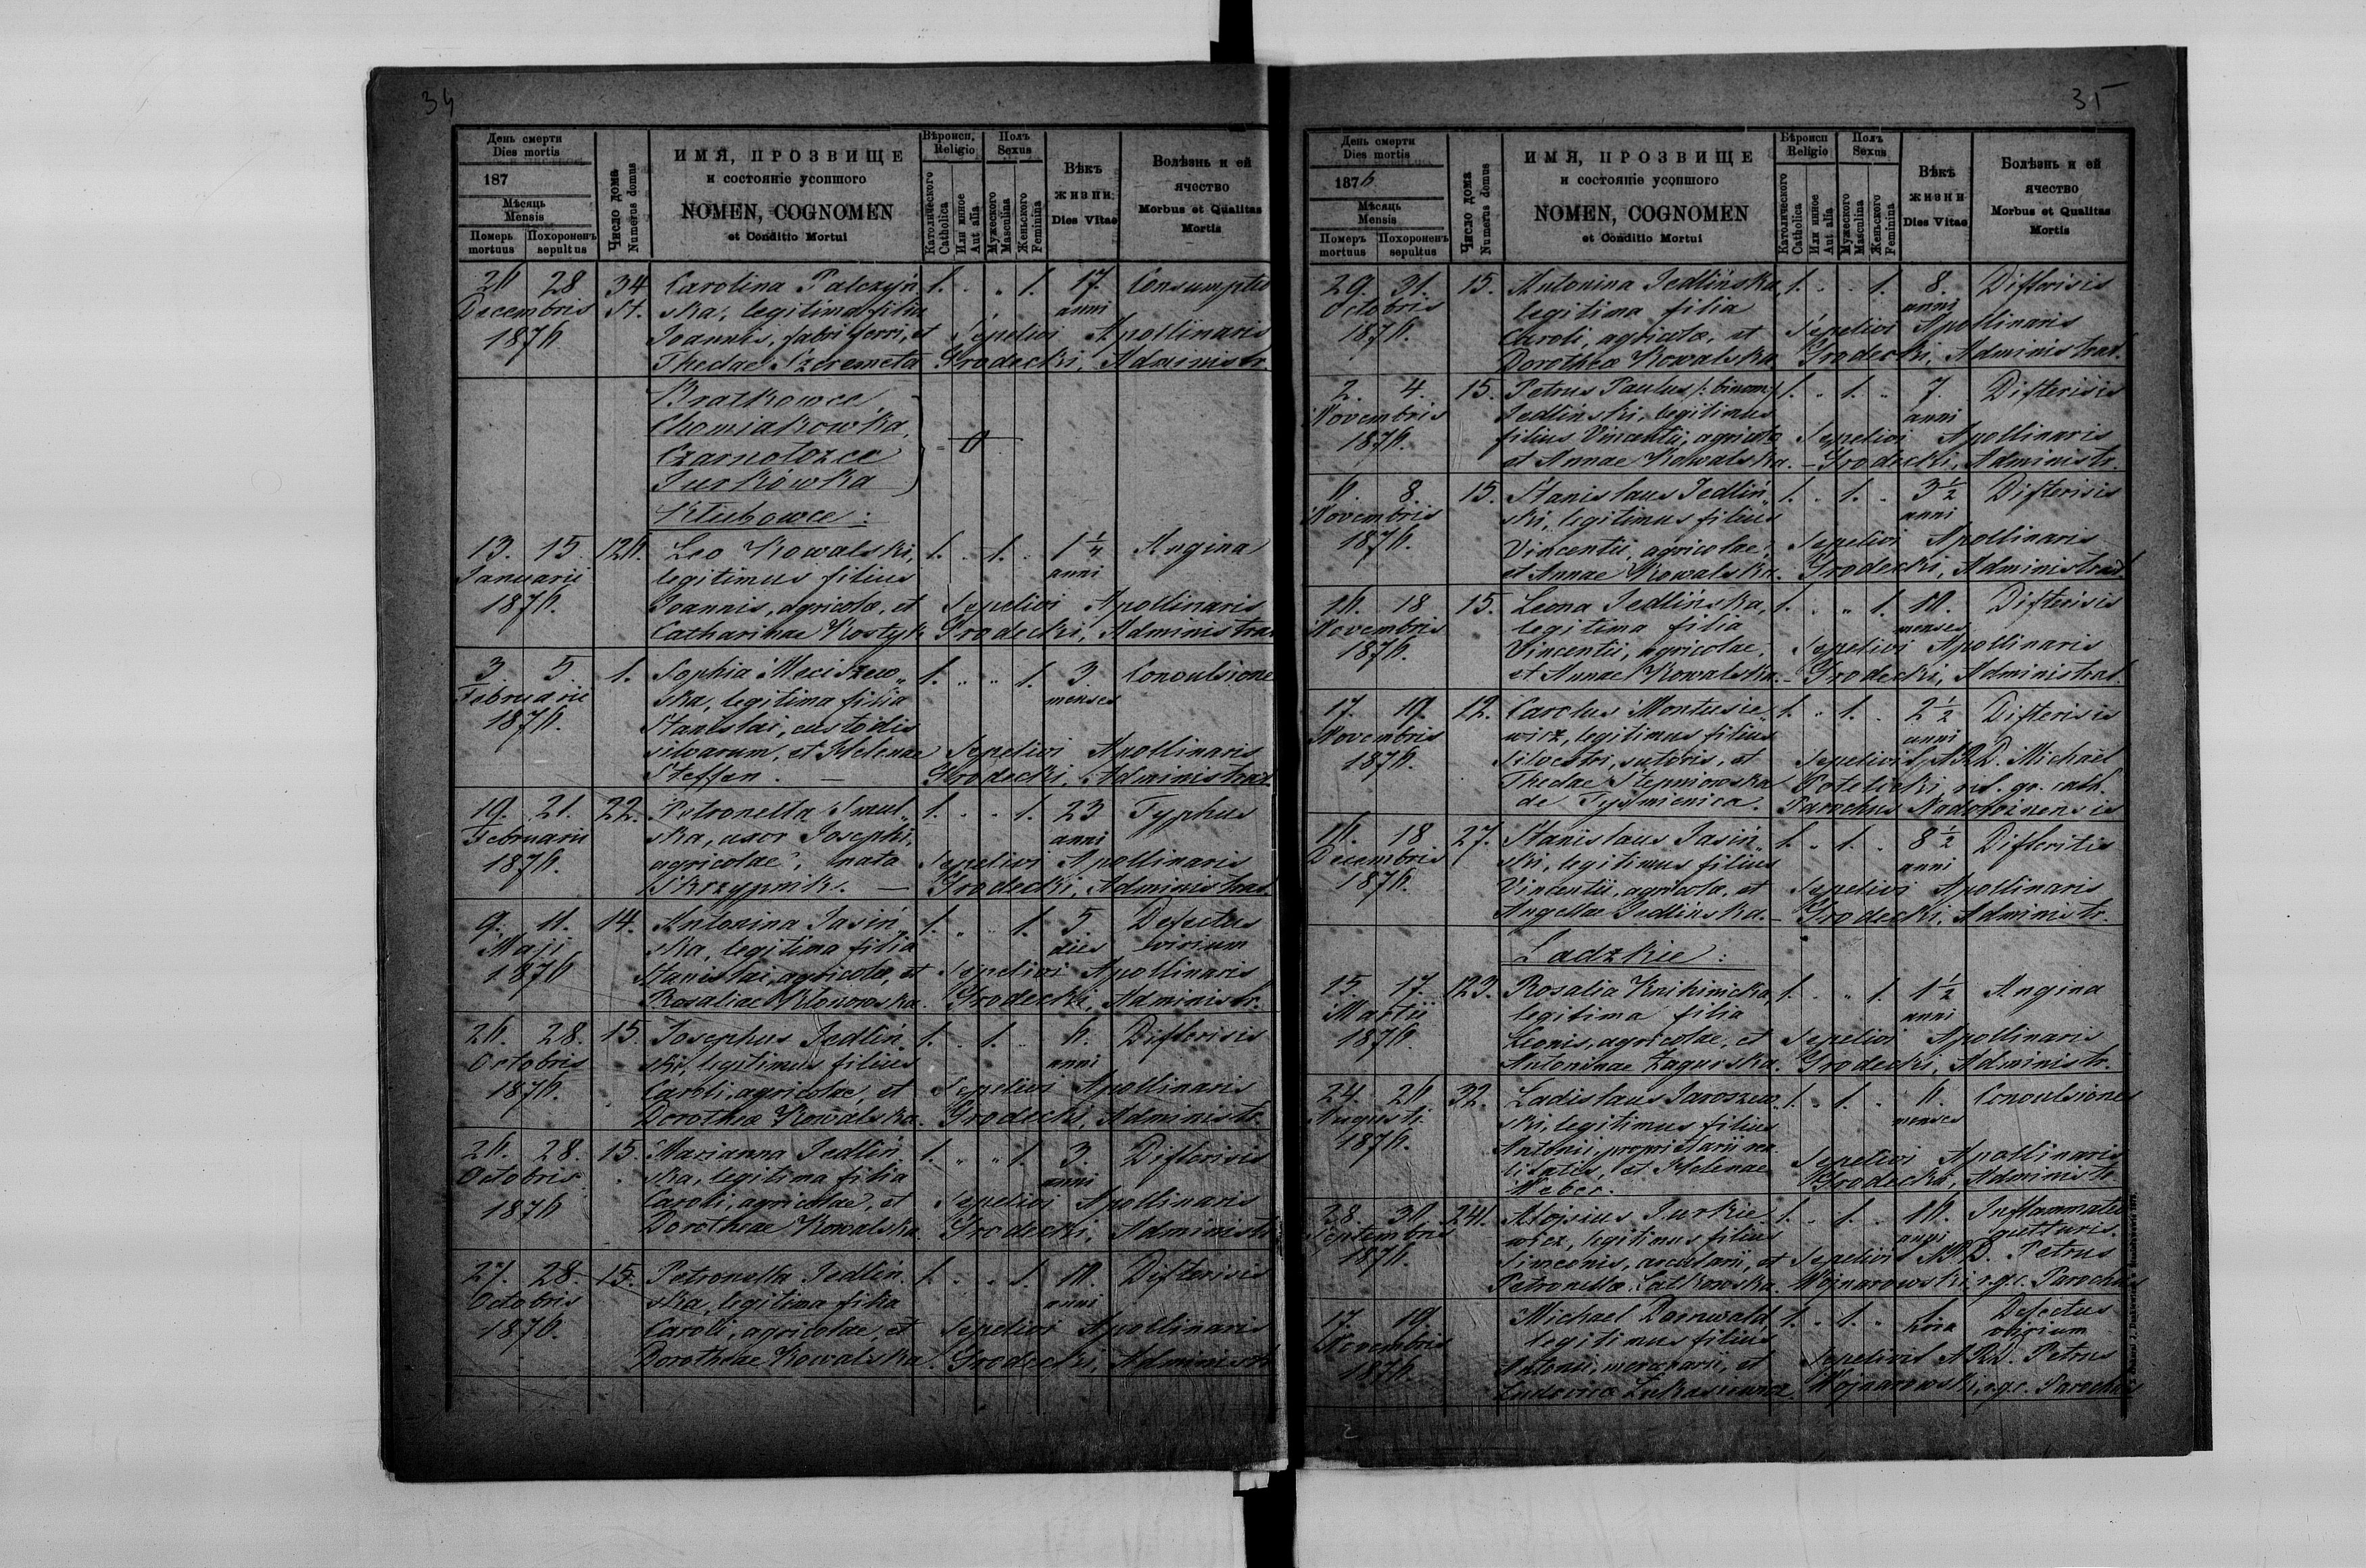 34
День смерти
Dies mortis
187
Мѣсяць
Mensis
Померъ
mortuus
Похороненъ
sepultus
Число дома
Numerus domus
ИМЯ, ПРОЗВИЩЕ
и состояніе усопшого
NOMEN, COGNOMEN
et Conditio Mortui
Вѣроисп.
Religio
Католического
Catholica
Или инное
Aut alia
Полъ
Sexus
Мужеского
Masculina
Женьского
Feminina
Вѣкъ
жизни
Dies Vitae
Болѣзнь и ей
ячество
Morbus et Qualitas
Mortis
26 28 34 Carolina Palczyń 1. . „ 1. 17. Consumptio
Decembris St. ska, legitima filia anni
1876 Joannis, fabri ferri, et Sepelivi Apollinaris
Theclae Szeremeta Grodecki, Administr.
Bratkowce
Chomiakówka,
Czarnołozce
Jurkówka
= 0
Kłubowce:
13. 15. 126. Leo Kowalski, 1. . 1. . 1 1/4 Angina
Januarii legitimus filius anni
1876. Joannis, agricolae, et Sepelivi Apollinaris
Catharinae Kostyk Grodecki, Administrat
3. 5. 1. Sophia Meciszew„ 1. „ „ 1. 3. Convulsione
Februarii ska, legitima filia menses
1876. Stanislai, custodis
silvarum, et Helenae Sepelivi Apollinaris
Steffen. — Grodecki, Administrat.
19. 21. 22. Petronella Smul„ 1. . . 1. 23 Typhus
Februarii ska, uxor Josephi, anni
1876. agricolae, nata Sepelivi Apollinaris
Skrzypnik. — Grodecki, Administrat.
9. 11. 14. Antonina Jasiń„ 1. „ . 1. 5. Defectus
Maji ska, legitima filia dies virium
1876 Stanislai, agricolae, et Sepelivi Apollinaris
Rosaliae Kłonowska. Grodecki, Administr.
26. 28. 15. Josephus Jedliń„ 1. . 1. . 6. Difterisis
Octobris ski, legitimus filius anni
1876. Caroli, agricolae, et Sepelivi Apollinaris
Dorothea Kowalska. Grodecki, Administr.
26. 28. 15. Marianna Jedliń„ 1. „ „ 1. 3 Difterisis
Octobris ska, legitima filia anni
1876 Caroli, agricolae, et Sepelivi Apollinaris
Dorotheae Kowalska Grodecki, Administr
27. 28. 15. Petronella Jedliń„ 1. . . 1. 10. Difterisis
Octobris ska, legitima filia anni
1876. Caroli, agricolae, et Sepelivi Apollinaris
Dorotheae Kowalska. Grodecki, Administr
35
День смерти
Dies mortis
1876
Мѣсяць
Mensis
Померъ
mortuus
Похороненъ
sepultus
Число дома
Numerus domus
ИМЯ, ПРОЗВИЩЕ
и состояніе усопшого
NOMEN, COGNOMEN
et Conditio Mortui
Вѣроисп
Religio
Католического
Catholica
Или инное
Aut alia
Полъ
Sexus
Мужеского
Masculina
Женьского
Feminina
Вѣкъ
жизни
Dies Vitae
Болѣзнь и ей
ячество
Morbus et Qualitas
Mortis
29. 31. 15. Antonina Jedlińska, 1. . . 1. 8. Difterisis
Octobris legitima filia anni
1876. Caroli, agricolae, et Sepelivi Apollinaris
Dorothea Kowalska Grodecki, Administrat.
2. 4. 15. Petrus Paulus /: binom:/ 1. . 1. „ 7. Difterisis
Novembris Jedliński, legitimus anni
1876. filius Vincentii, agricola Sepelivi Apollinaris
et Annae Kowalska. – Grodecki, Administr.
6. 8. 15. Stanislaus Jedliń„ 1. . 1. . 3 1/2 Difterisis
Novembris ski, legitimus filius anni
1876. Vincentii, agricolae, Sepelivi Apollinaris
et Annae Kowalska. Grodecki, Administrat.
16. 18 15. Leona Jedlińska, 1. . „ 1. 10. Difterisis
Novembris legitima filia menses
1876. Vincentii, agricolae, Sepelivi Apollinaris
et Annae Kowalska. – Grodecki, Administrat.
17. 19. 12. Carolus Montusie„ 1. „ 1. . 2 1/2 Difterisis
Novembris wicz, legitimus filius anni
1876. Silvestri, sutoris, et Sepelivit A.R.D. Michael
Theclae Stepniowska Potelicki, rit. gr. cath.
de Tyśmienica. Parochus
16. 18 27. Stanislaus Jasiń„ 1. „ 1. „ 8 1/2 Difteritis
Decembris ski, legitimus filius anni
1876. Vincentii, agricolae, et Sepelivi Apollinaris
Angellae Jedlińska. – Grodecki, Administr.
Ladzkie:
15. 17. 123. Rosalia Knihinicka, 1. . „ 1. 1 1/2 Angina
Martii legitima filia anni
1876. Leonis, agricolae, et Sepelivi Apollinaris
Antoninae Zagurska. Grodecki, Administr.
24. 26 32. Ladislaus Jaroszew„ 1. „ 1. „ 6. Convulsiones
Augusti ski, legitimus filius menses
1876. Antonii, proprietarii rea„
litatis, et Helenae Sepelivi Apollinaris
Weber. Grodecki, Administr.
28. 30 241. Alojsius Jurkie„ 1. „ 1. „ 10. Inflammatio
Septembris wicz, legitimus filius anni gutturis.
1876. Simeonis, arcularii, et Sepelivit A.R.D. Petrus
Petronella Catkowska. Wojnarowski, r.g.c. Parochus
17. 19. Michael Dornwald 1. . 1. „ 1 Defectus
Novembris legitimus filius hora virium
1876. Antonii, mercenarii, et Sepelivit A.R.D. Petrus
Ludovica Łukasiewicz. Wojnarowski, r.g.c. Parochus
2